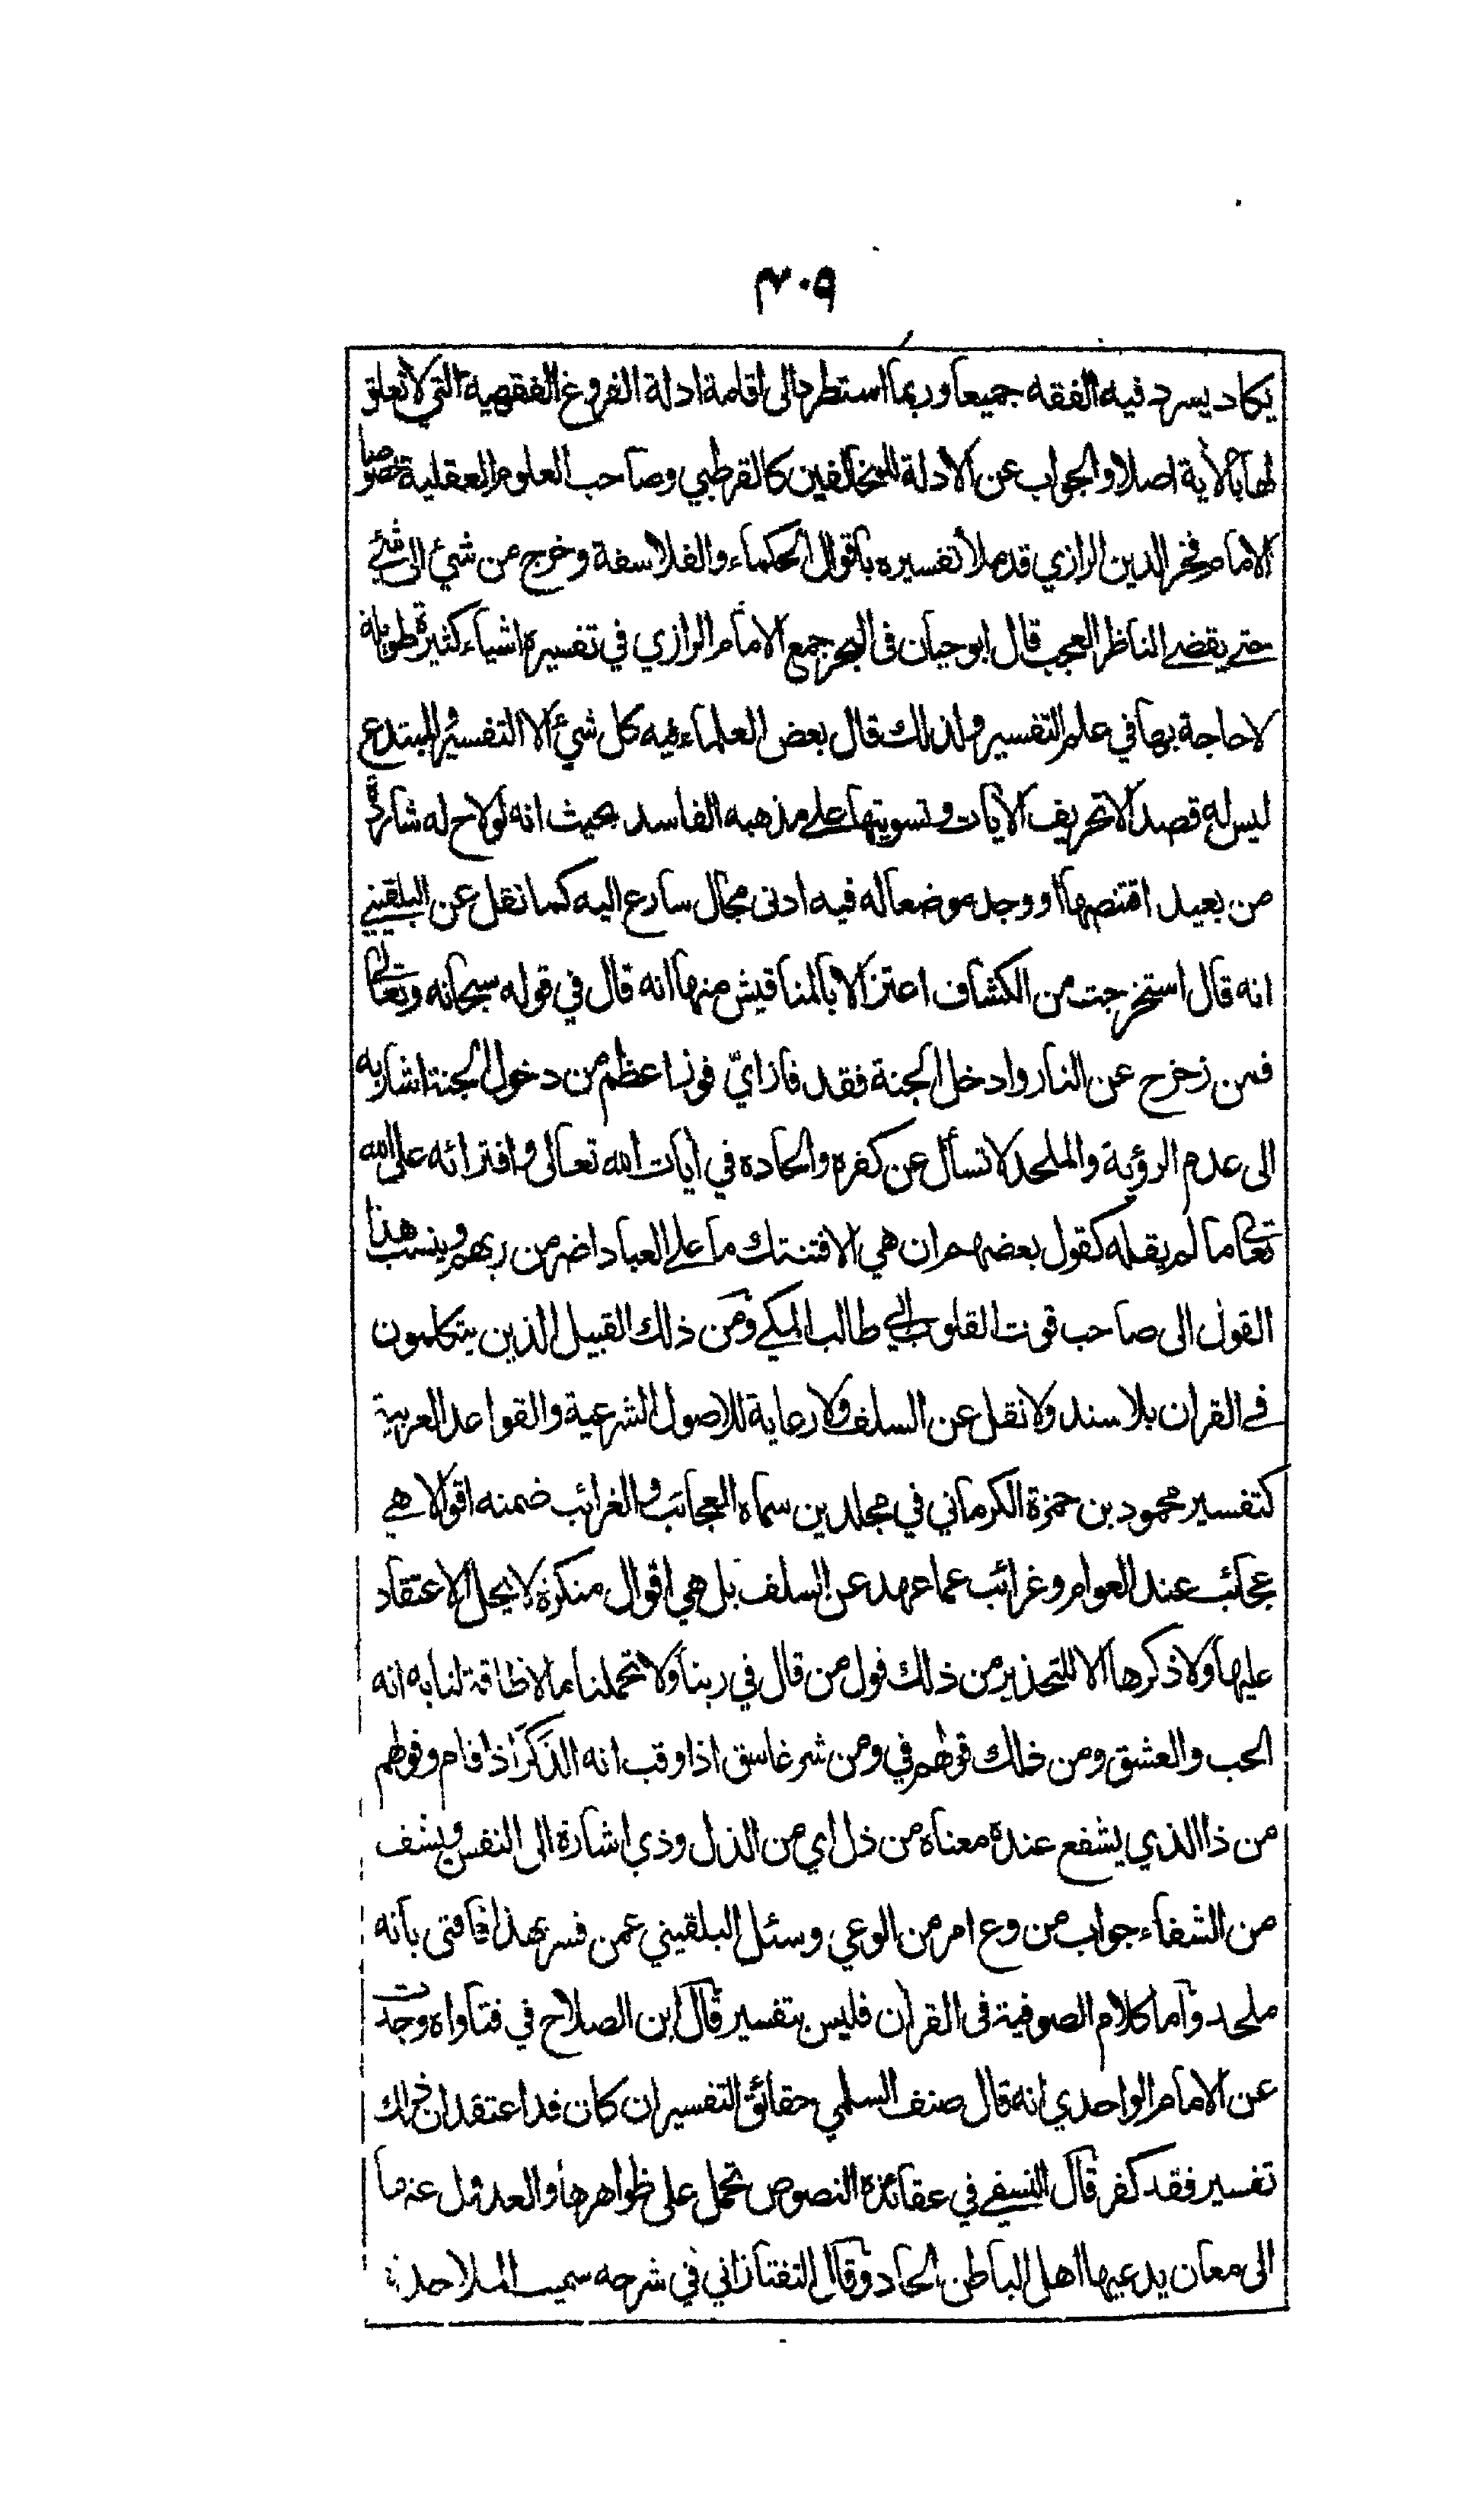 ٣٠٩
يكاد يسرد فيه الفقه جميعا وربما استطرد الى اقامة ادلة الفروع الفقهية التي لا تعلق
لها بالأية اصلا والجواب عن الادلة للمخالفين كالقرطبي وصاحب العلوم العقلية خصوصا
الامام فخر الدين الرازي قد ملأ تفسيره باقوال الحكماء والفلاسفة وخرج من شيئ الى شيئ
حتى يقضي الناظر العجب قال ابو حيان في البحر جمع الامام الرازي في تفسيره اشياء كثيرة طويلة
لا حاجة بها في علم التفسير ولذلك قال بعض العلماء فيه كل شيئ الا التفسير والمبتدع
ليس له قصد الا تحريف الأيات وتسويتها على مذهبه الفاسد بحيث انه لو لاح له شاردة
من بعيد اقتنصها او وجد موضعا له فيه ادنى مجال سارع اليه كما نقل عن البلقيني
انه قال استخرجت من الكشاف اعتزالا بالمناقيش منها انه قال في قوله سبحانه وتعالى
فمن زحزح عن النار وادخل الجنة فقد فاز ايّ فوز اعظم من دخول الجنة اشار به
الى عدم الرؤية والملحد لا تسأل عن كفره والحاده في أيات الله تعالى وافترائه على الله
تعالى ما لم يقله كقول بعضهم ان هي الا فتنتك ما على العباد اضر من ربهم وينسب هذا
القول الى صاحب قوت القلوب ابي طالب المكي ومن ذلك القبيل الذين يتكلمون
في القران بلا سند ولا نقل عن السلف ولا رعاية للاصول الشرعية والقواعد العربية
كتفسير محمود بن حمزة الكرماني في مجلدين سماه العجائب والغرائب ضمنه اقوالا هي
عجائب عند العوام وغرائب عما عهد عن السلف بل هي اقوال منكرة لا يحل الاعتقاد
عليها ولا ذكرها الا للتحذير من ذلك قول من قال في ربنا ولا تحملنا ما لا طاقة لنا به انه
الحب والعشق ومن ذلك قولهم في ومن شر غاسق اذا وقب انه الذَكَر اذا قام وقولهم
من ذا الذي يشفع عنده معناه من ذل اي من الذل وذي اشارة الى النفس ويشف
من الشفاء جواب من وع امر من الوعي وسئل البلقيني عمن فسر بهذا فافتى بانه
ملحد واما كلام الصوفية في القرأن فليس بتفسير قال ابن الصلاح في فتاواه وجدت
عن الامام الواحدي انه قال صنف السلمي حقائق التفسير ان كان قد اعتقد ان ذلك
تفسير فقد كفر قال النسفي في عقائده النصوص تحمل على ظواهرها والعدول عنها
الى معان يدعيها اهل الباطن الحاد وقال التفتازاني في شرحه سميت الملاحدة